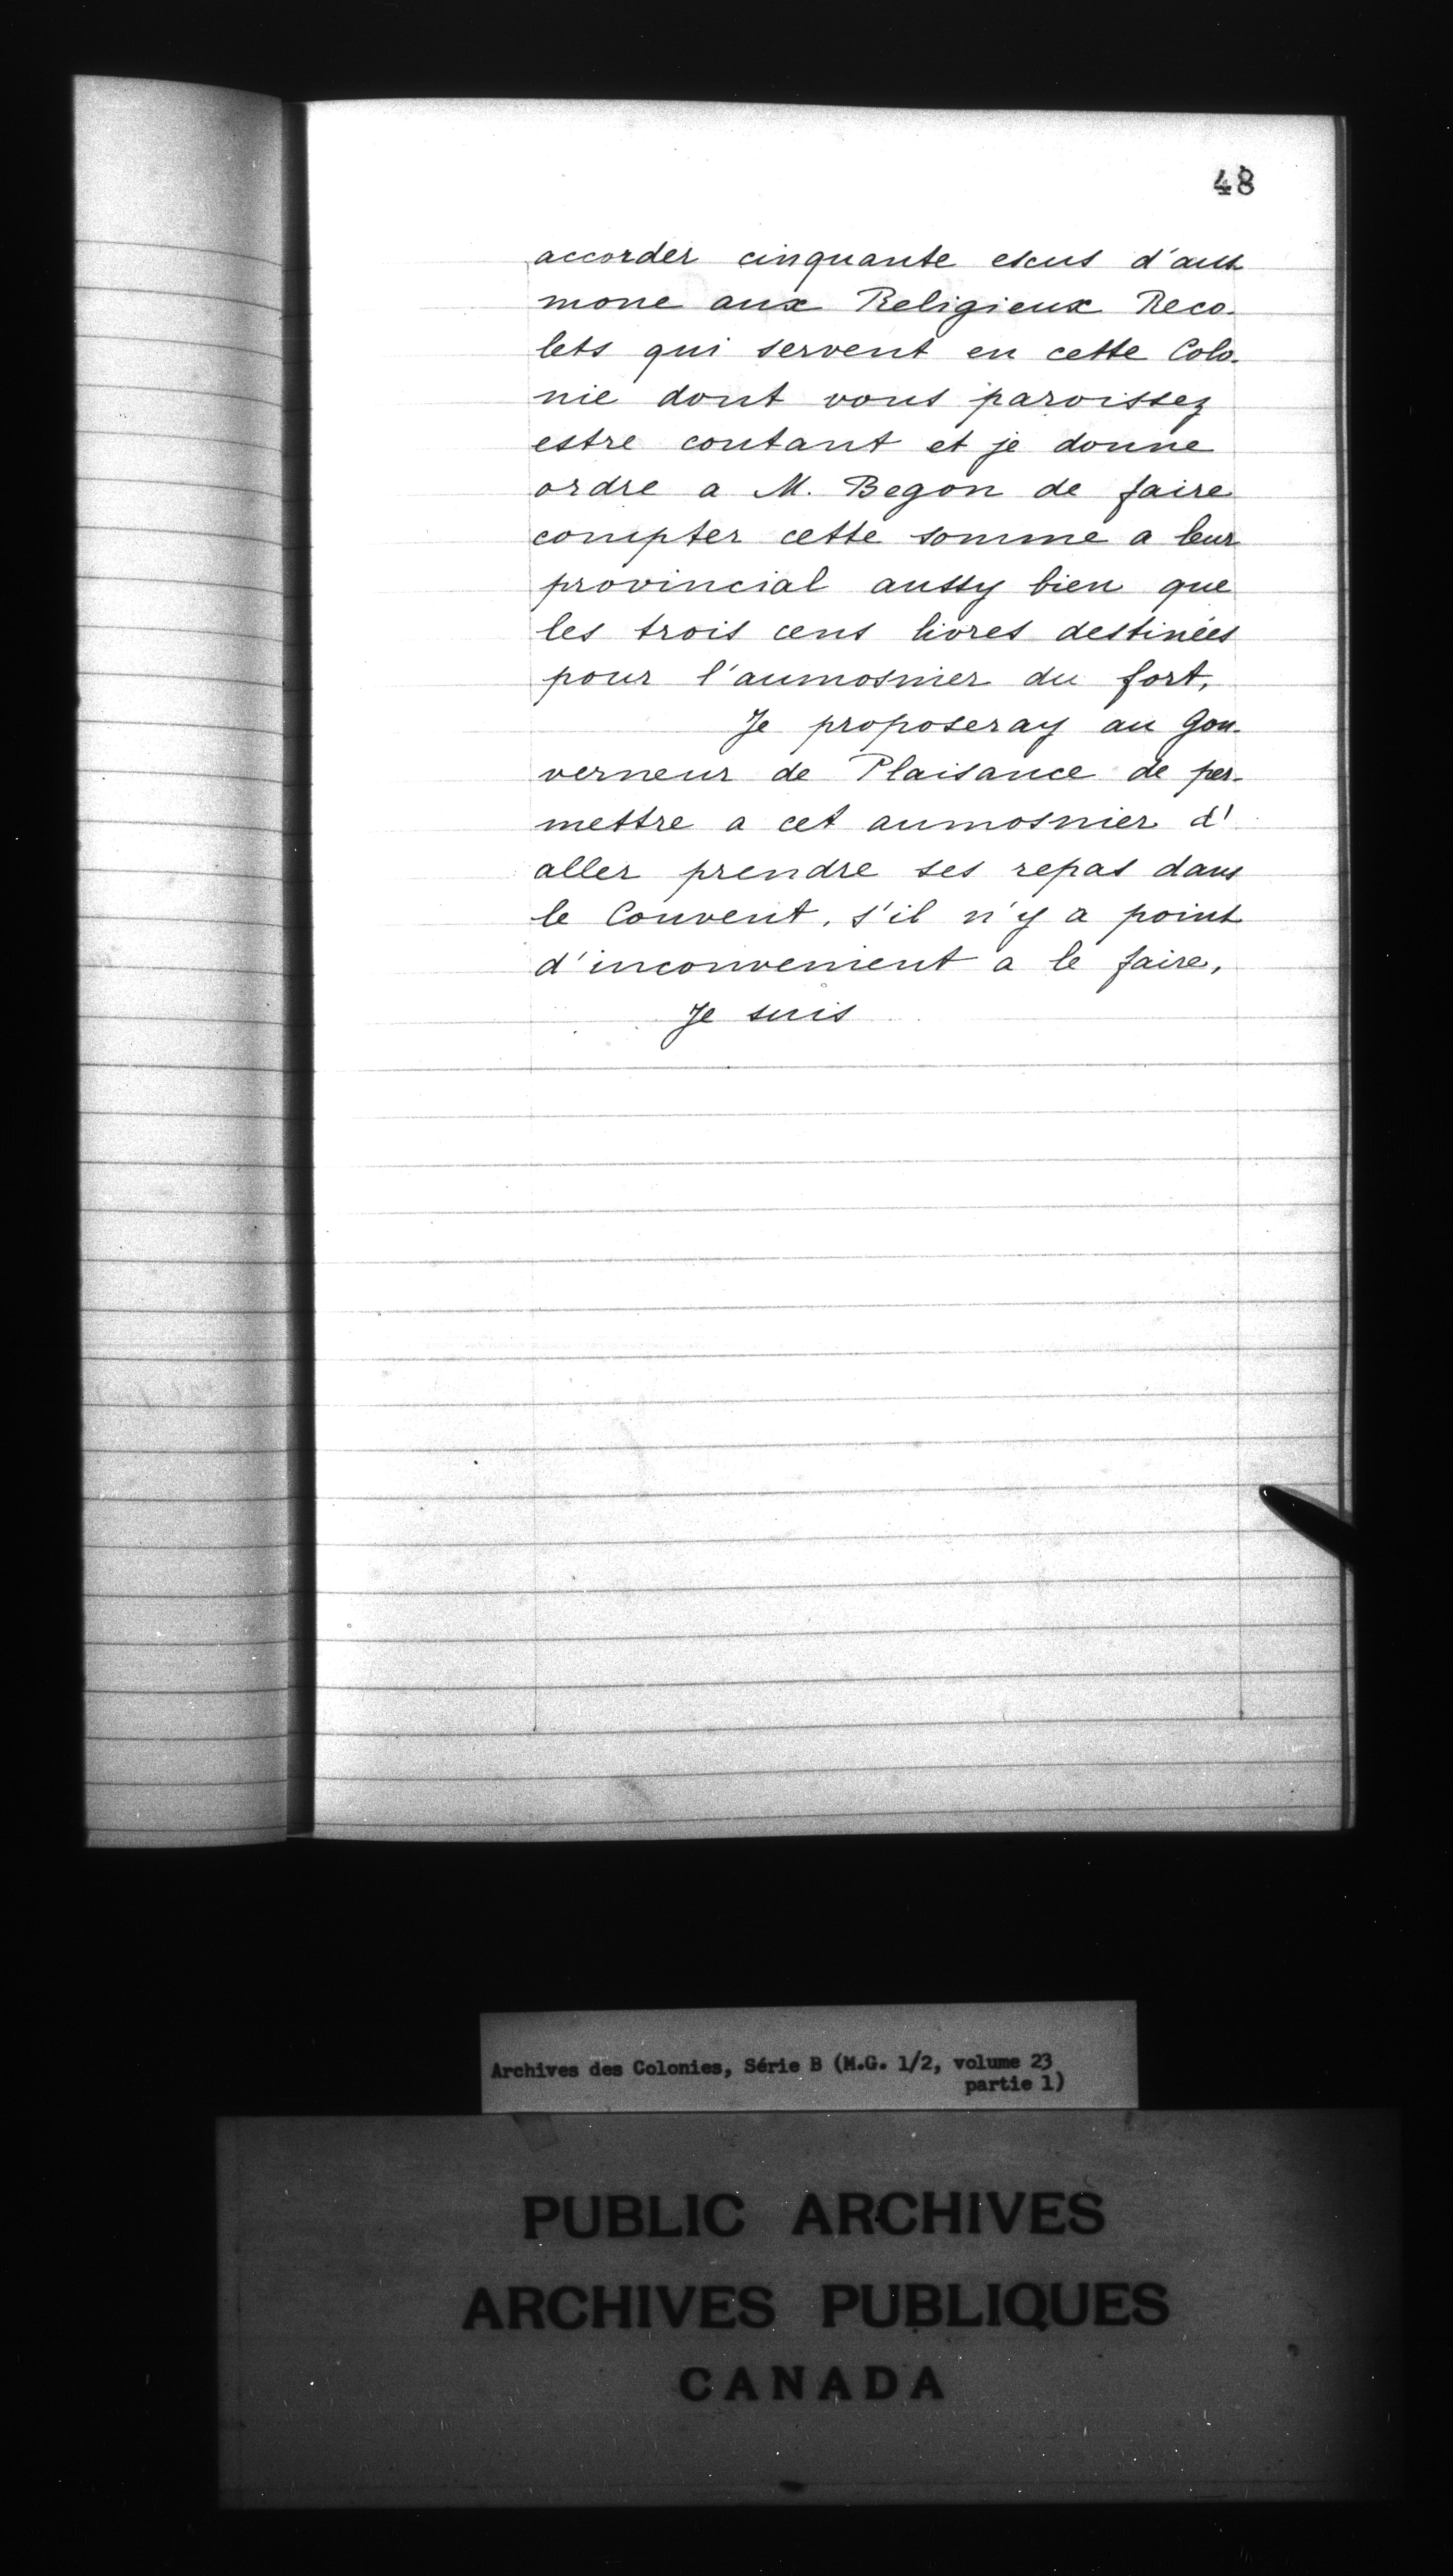 48
accorder cinquante escus d'aus
mone aux Religieux Reco-
lets qui servent en cette Colo-
nie dont vous paroissez
estre contant et je donne
ordre a M. Begon de faire
compter cette somme a leur
provincial aussy bien que
les trois cens livres destinées
pour l'aumosnier du fort,
Je proposeray au Gou-
verneur de Plaisance de per-
mettre a cet aumosnier d'
aller prendre ses repas dans
le Couvent, s'il n'y a point
d'inconvenient a le faire,
Je suis
Archives des Colonies, Série B (M.G. 1/2, volume 23
partie 1)
PUBLIC ARCHIVES
ARCHIVES PUBLIQUES
CANADA